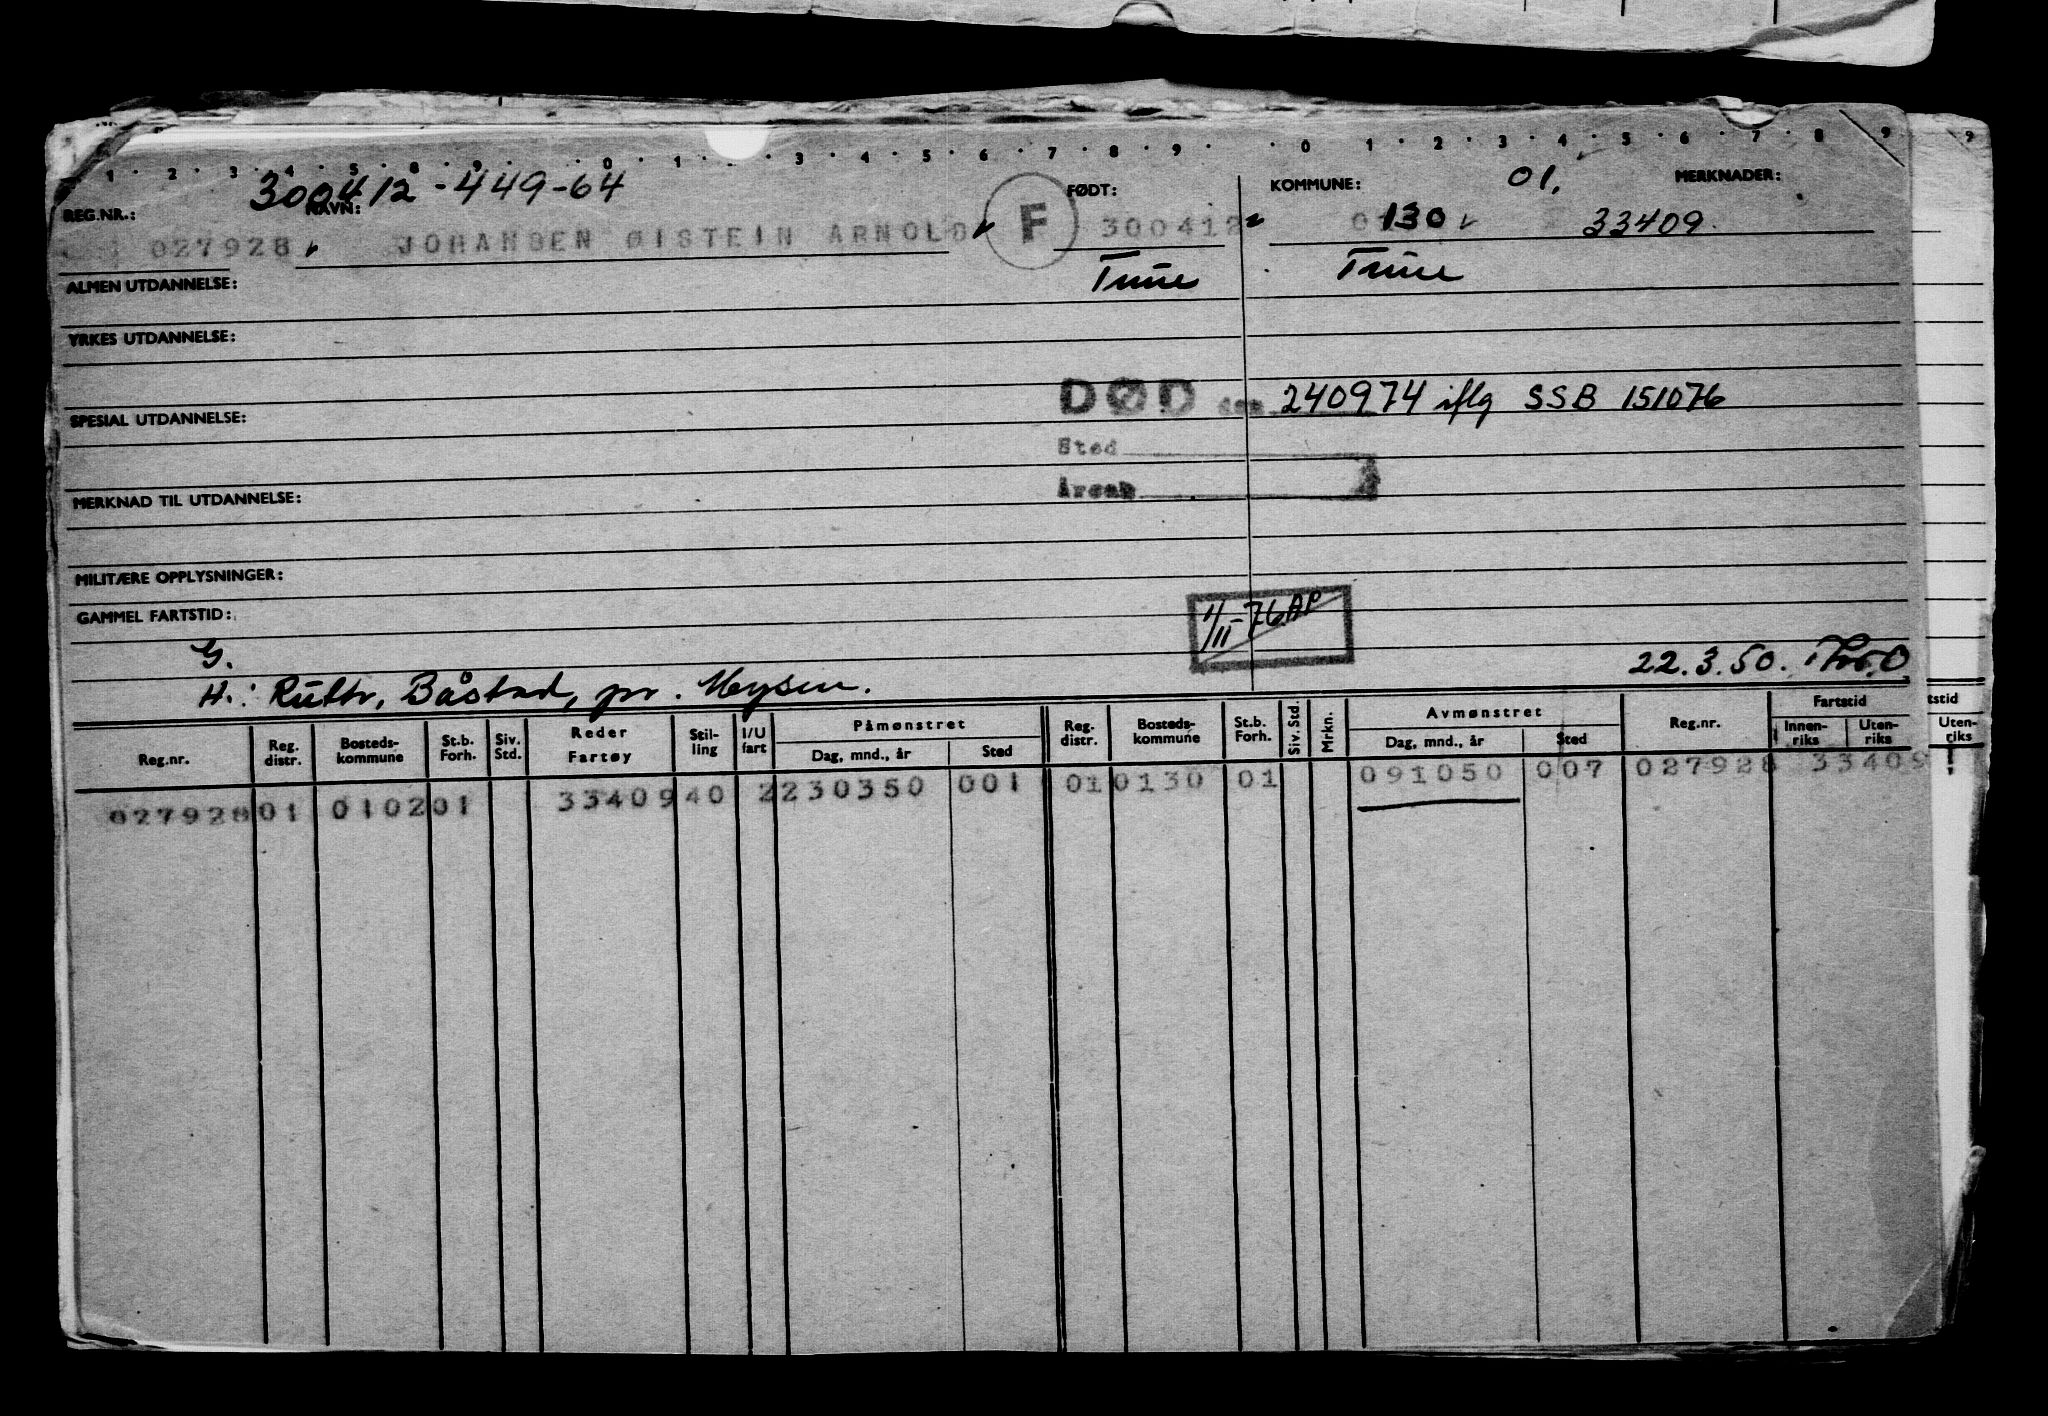 1 · 2 · 3 · 4 · 5 · 8 · 9 · 0 · 1 · 3 · 4 · 5 · 6 · 7 · 8 · 9 · 0 · 1 · 2 · 3 · 4 · 5 · 6 · 7 · 8 · 9
300412-449-64 01.
REG.NR.: NAVN: FØDT: KOMMUNE: MERKNADER:
027928 JOHANSEN ØISTEIN ARNOLD F 300412 130 33409
ALMEN UTDANNELSE: Tune Tune
YRKES UTDANNELSE:
DØD den 240974 iflg SSB 151076
SPESIAL UTDANNELSE:
Sted
Årsak
MERKNAD TIL UTDANNELSE:
MILITÆRE OPPLYSNINGER:
GAMMEL FARTSTID: 1/11-76 AP
G.
H.: Båstad, pr. Mysen. 22.3.50.
Reg.nr. Reg. distr. Bosteds-kommune St.b. Forh. Siv. Std. Reder Fartøy Stil-ling I/U fart Påmønstret Dag, mnd., år Sted Reg. distr. Bosteds-kommune St.b. Forh. Siv. Std. Mrkn. Avmønstret Dag, mnd., år Sted Reg.nr. Fartstid Innen-riks Uten-riks
027928 01 0102 01 33409 40 2 230350 001 01 0130 01 091050 007 027928 33409
9
tstid
Uten-riks